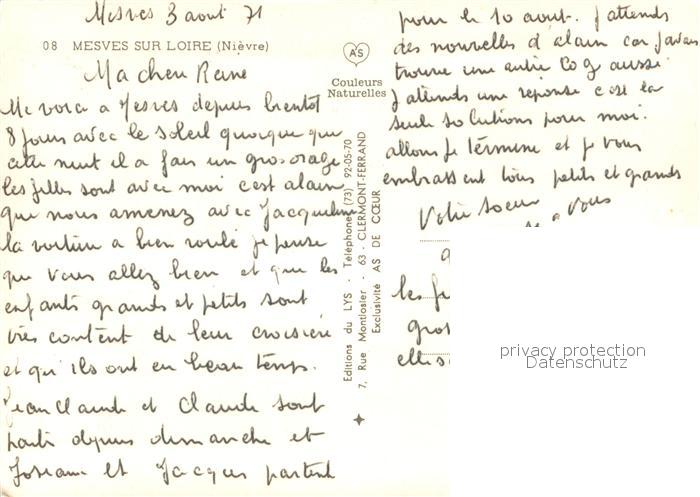 Mesves 3 aout 71
08 MESVES SUR LOIRE (Nièvre)
Ma cher
Me voici a Mesves depuis bientot
8 jours avec le soleil quoique que
cette nuit il a fais un gros orage
les filles sont avec moi c'est alain
que nous amenez avec Jacqueline
la voiture a bien roulé je pense
que vous allez bien et que les
enfants grands et petits sont
très content de leur croisière
et qu'ils ont eu beau temps.
Jean Claude et Claude sont
parti depuis dimanche et
Josiane et Jacques partent
AS
Couleurs
Naturelles
Editions du LYS - Téléphone (73) 92-05-70
7, Rue Montlosier - 63 - CLERMONT-FERRAND
Exclusivité AS DE CŒUR
pour le 10 aout. J'attends
des nouvelles d'alain car j'avais
trouve une autre aussi
J'attends une reponse c'est la
seule solutions pour moi.
allons je termine et je vous
embrassent tous petits et grands
Votre soeur
a vous
les
gros
elles
privacy protection
Datenschutz